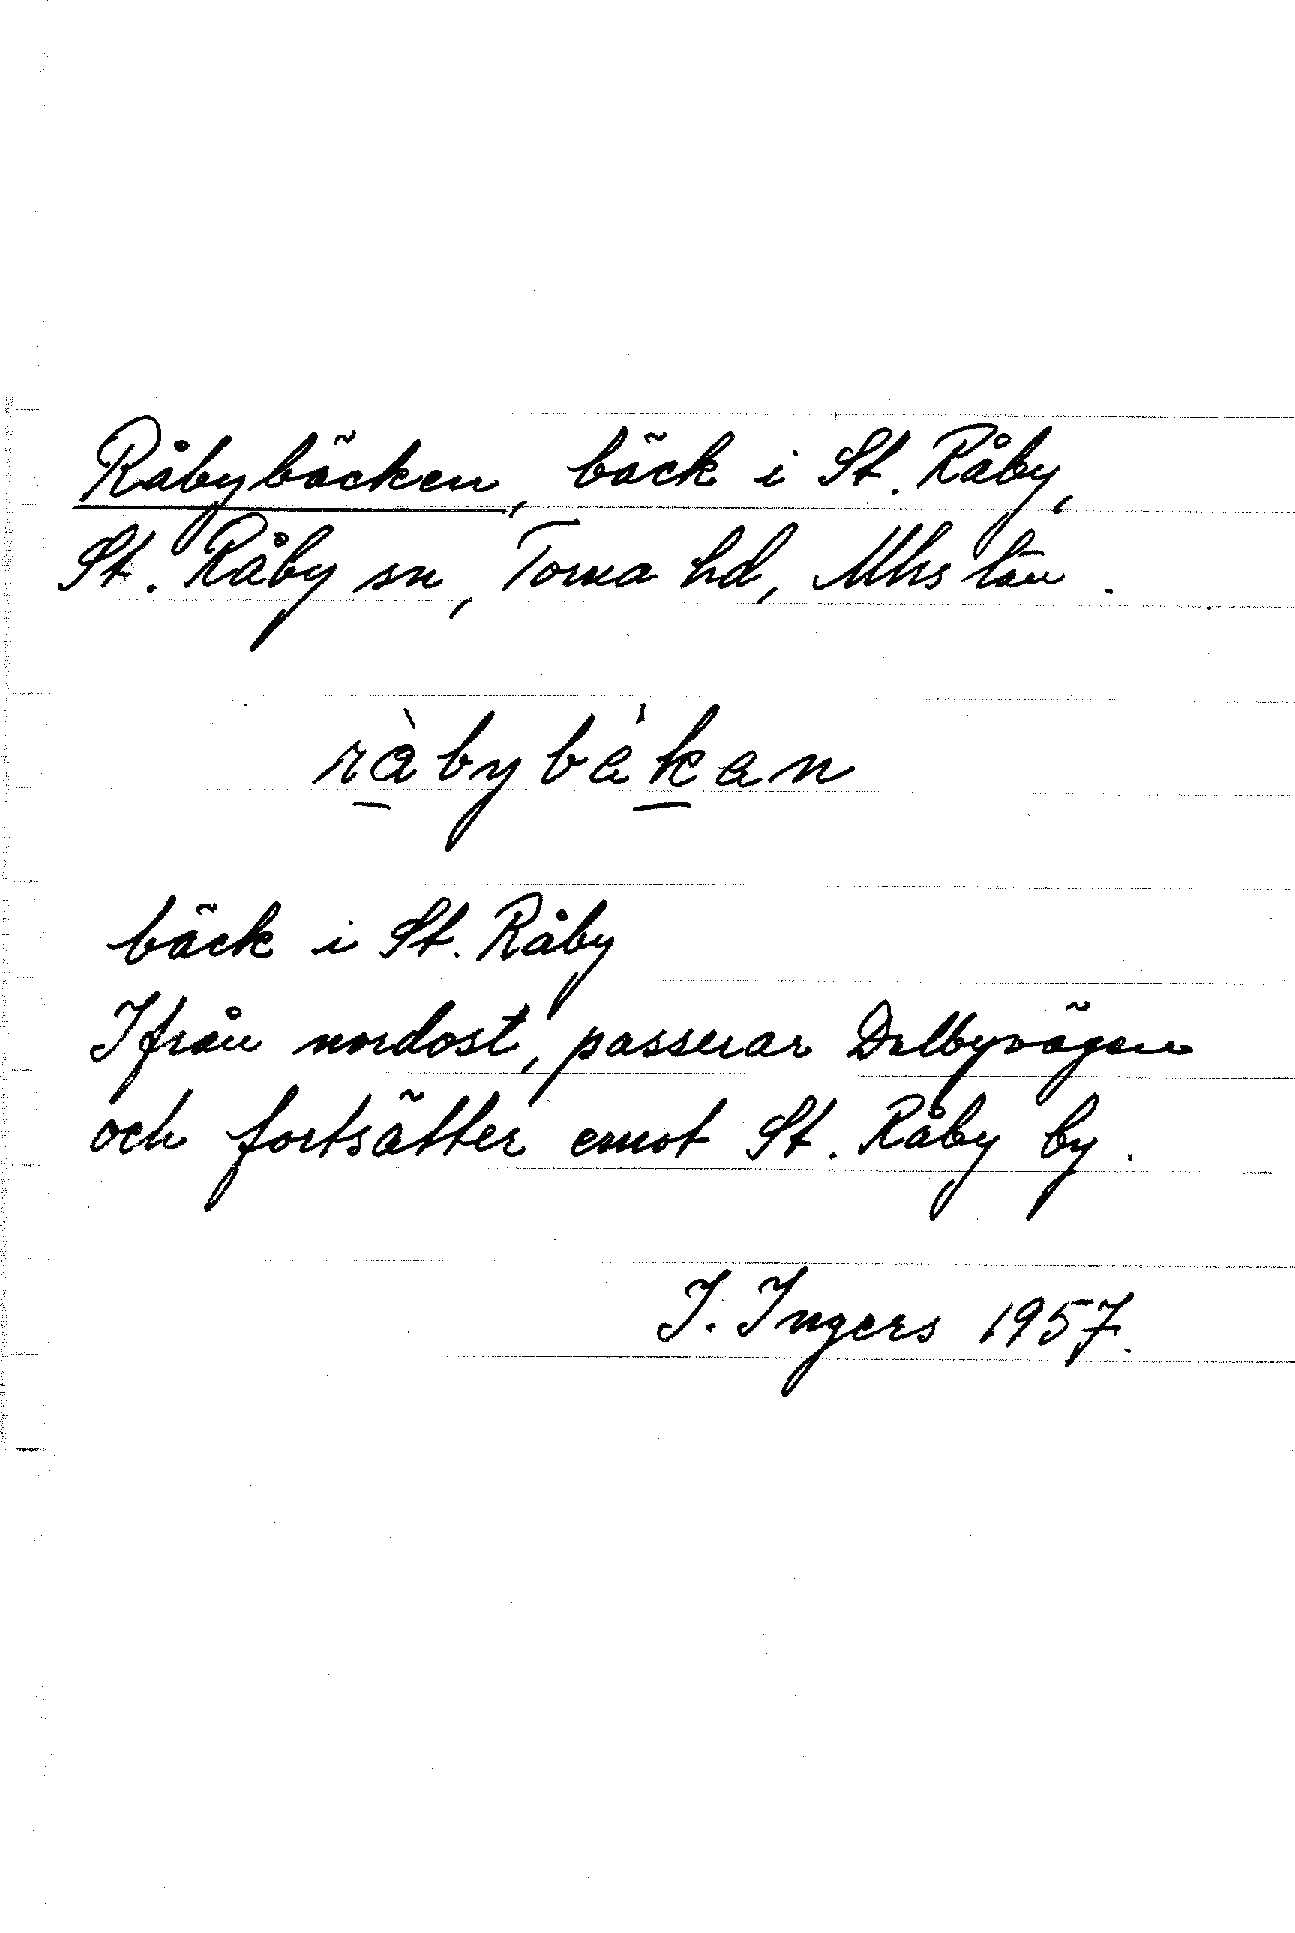 Råbybäcken, bäck i St. Råby,
St. Råby sn, Torna hd, Mhs län.
ràbybákan
bäck i St. Råby
Ifrån nordost, passerar Dalbyvägen
och fortsätter emot St. Råby by.
I. Ingers 1957.